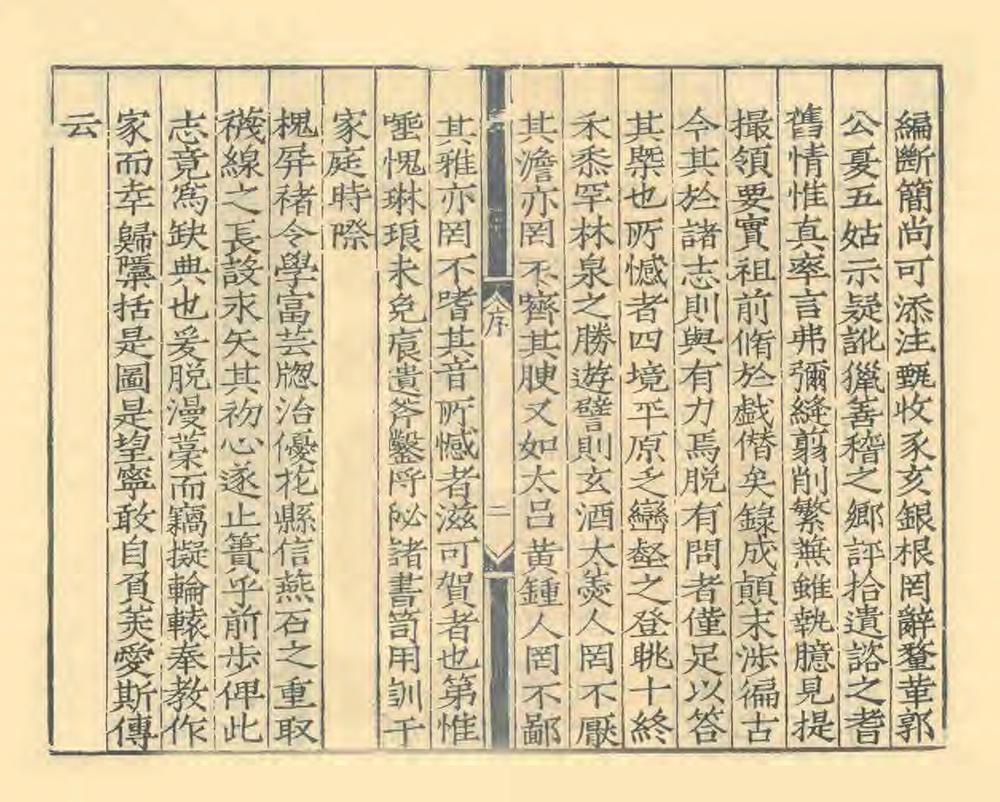 編斷簡尚可添注甄收豕亥銀根罔辭釐革郭
公夏五姑示疑訛獵善稽之鄉評拾遺諮之耆
舊情惟真率言弗彌縫翦削繁蕪雖執臆見提
撮領要實祖前脩於戲僭矣錄成顛末涉徧古
今其於諸志則與有力焉脫有問者僅足以答
其槩也所憾者四境平原乏巒壑之登眺十終
禾黍罕林泉之勝遊譬則玄酒太羹人罔不厭
其澹亦罔不嚌其腴又如太呂黃鍾人罔不鄙
序
二
其雅亦罔不嗜其音所憾者滋可賀者也第惟
唾愧琳琅未免扆遺斧鑿呼祕諸書笥用訓于
家庭時際
槐屏褚令學富芸牕治優花縣信燕石之重取
襪線之長設求矢其初心遂止簣乎前步俾此
志竟為缺典也爰脫漫藁而竊擬輪轅奉教作
家而幸歸檃括是圖是望寧敢自負英愛斯傳
云